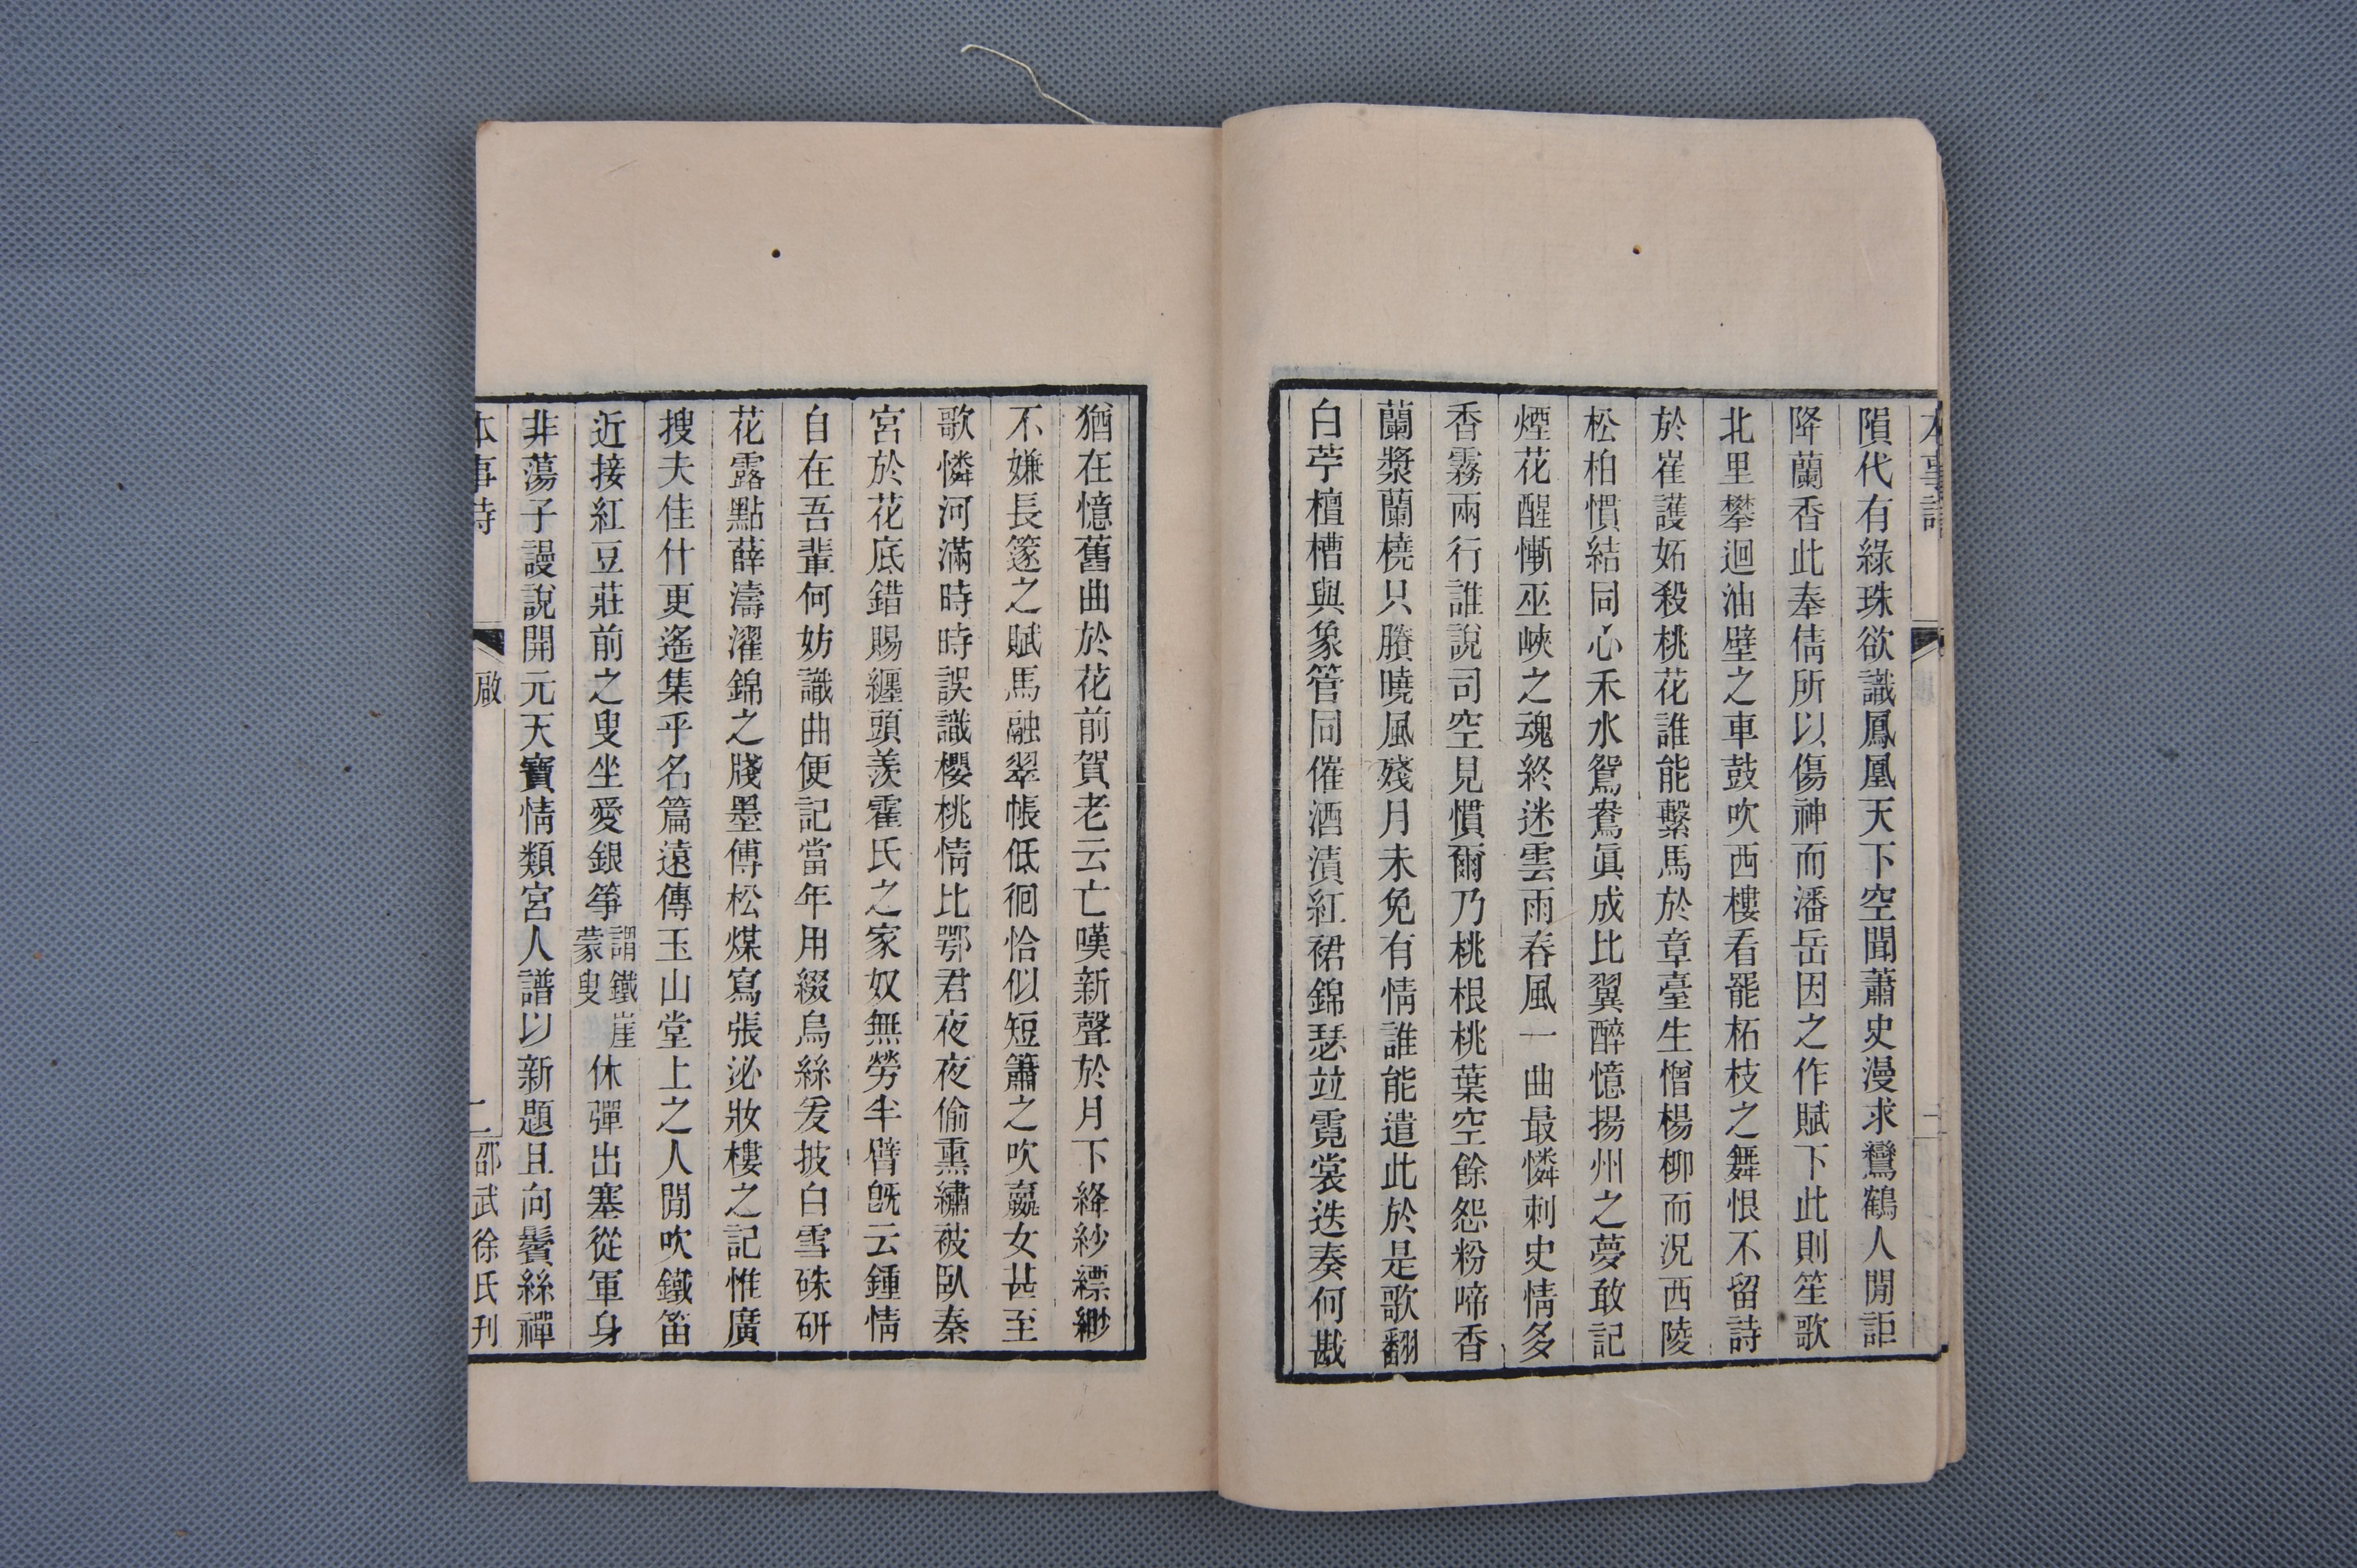 本事詩
隕代有綠珠欲識鳳凰天下空聞蕭史漫求鸞鶴人閒詎
降蘭香此奉倩所以傷神而潘岳因之作賦下此則笙歌
北里攀迴油壁之車鼓吹西樓看罷柘枝之舞恨不留詩
於崔護妬殺桃花誰能繫馬於章臺生憎楊柳而況西陵
松柏慣結同心禾水鴛鴦眞成比翼醉憶揚州之夢敢記
煙花醒慚巫峽之魂終迷雲雨春風一曲最憐刺史情多
香霧兩行誰說司空見慣爾乃桃根桃葉空餘怨粉啼香
蘭漿蘭橈只賸曉風殘月未免有情誰能遣此於是歌翻
白苧檀槽與象管同催酒漬紅裙錦瑟竝霓裳迭奏何戡
猶在憶舊曲於花前賀老云亡嘆新聲於月下絳紗縹緲
不嫌長篴之賦馬融翠帳低徊恰似短簫之吹嬴女甚至
歌憐河滿時時誤識櫻桃情比鄂君夜夜偷熏繡被臥秦
宮於花底錯賜纏頭羨霍氏之家奴無勞半臂旣云鍾情
自在吾輩何妨識曲便記當年用綴烏絲爰披白雪硃研
花露點薛濤濯錦之牋墨傅松煤寫張泌妝樓之記惟廣
搜夫佳什更遙集乎名篇遠傳玉山堂上之人閒吹鐵笛
近接紅豆莊前之叟坐愛銀箏謂鐵崖蒙叟休彈出塞從軍身
非蕩子謾說開元天寶情類宮人譜以新題且向鬢絲禪
本事詩 啟 二 邵武徐氏刊